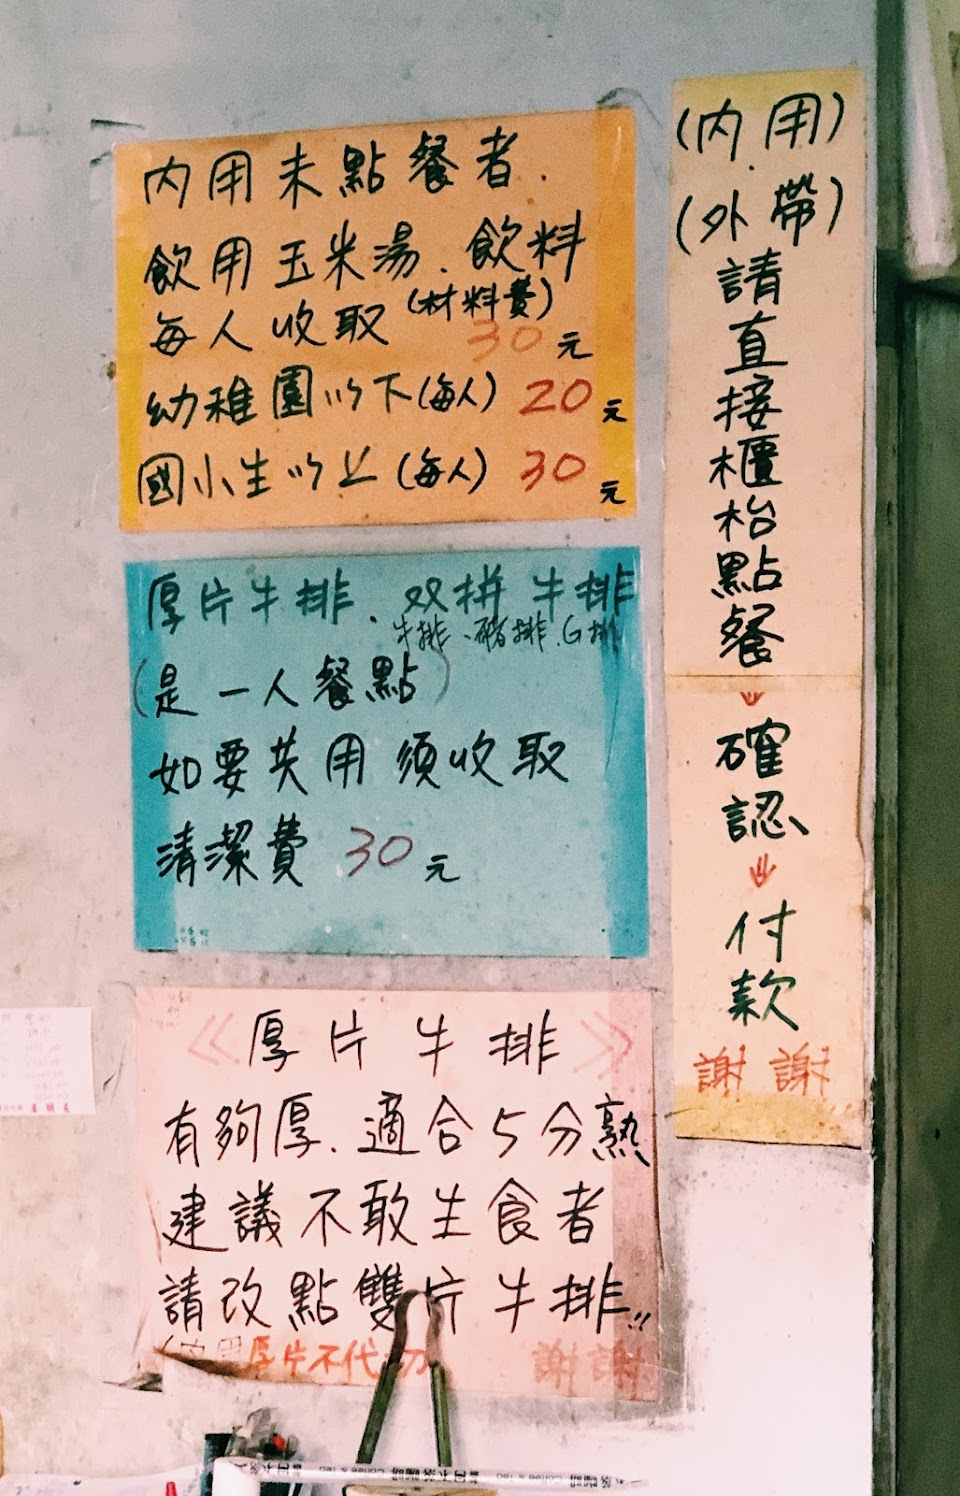 內用未點餐者.
飲用玉米湯.飲料
每人收取(材料費)30元
幼稚園以下(每人)20元
國小生以上(每人)30元
厚片牛排、双拼牛排
牛排、豬排.G排
(是一人餐點)
如要共用須收取
清潔費30元
《厚片牛排》
有夠厚.適合5分熟
建議不敢生食者
請改點雙片牛排!!
(內用厚片不代切
謝謝
(內用)
(外帶)
請直接櫃枱點餐↓確認↓付款
謝謝